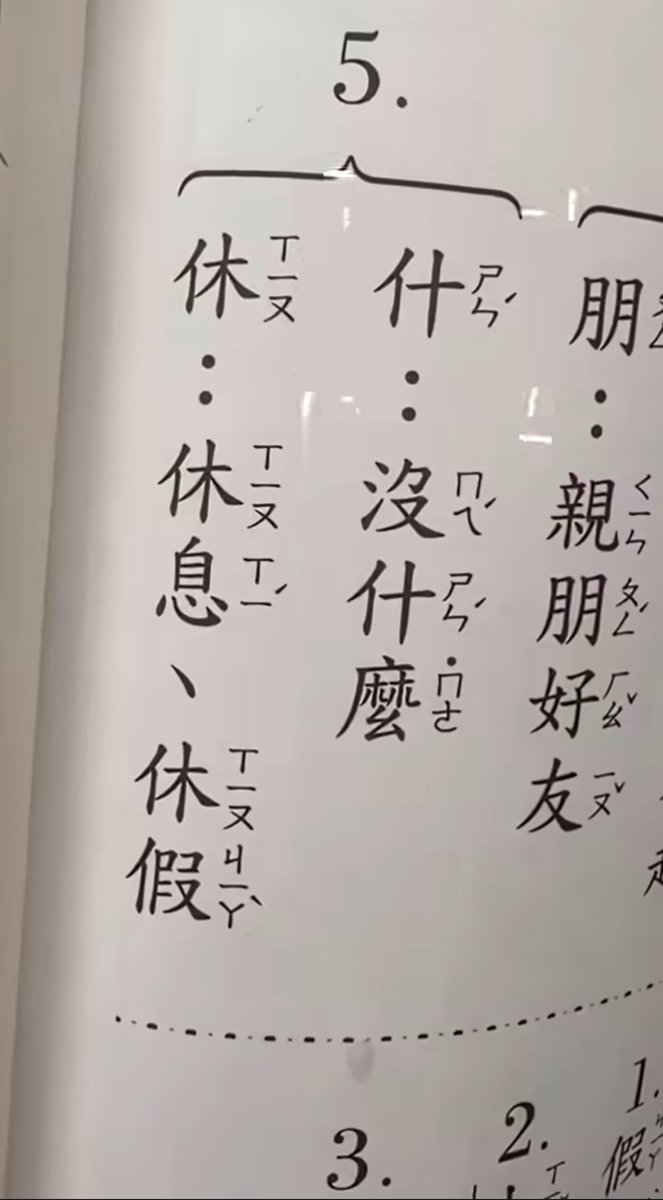 5.
朋：親ㄑㄧㄣ朋ㄆㄥˊ好ㄏㄠˇ友ㄧㄡˇ
什ㄕㄣˊ：沒ㄇㄟˊ什ㄕㄣˊ麼˙ㄇㄜ
休ㄒㄧㄡ：休ㄒㄧㄡ息ㄒㄧˊ、休ㄒㄧㄡ假ㄐㄧㄚˋ
1.
假
2.
3.